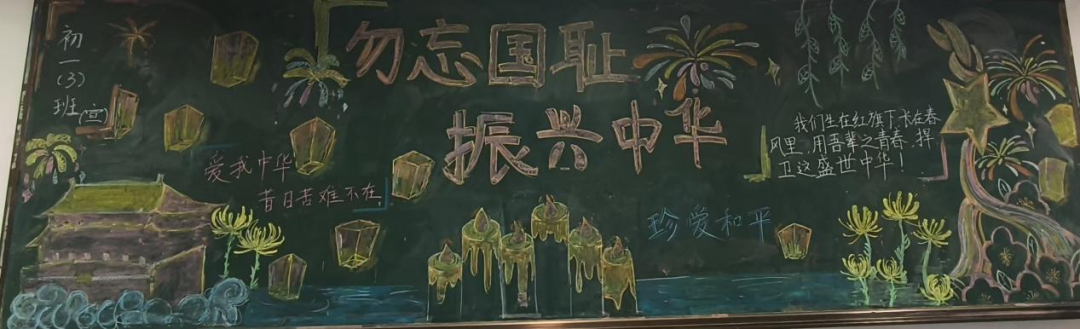 初一(3)班(宣)
勿忘国耻
振兴中华
爱我中华
昔日苦难不在
珍爱和平
我们生在红旗下,长在春
风里,用吾辈之青春,捍
卫这盛世中华!